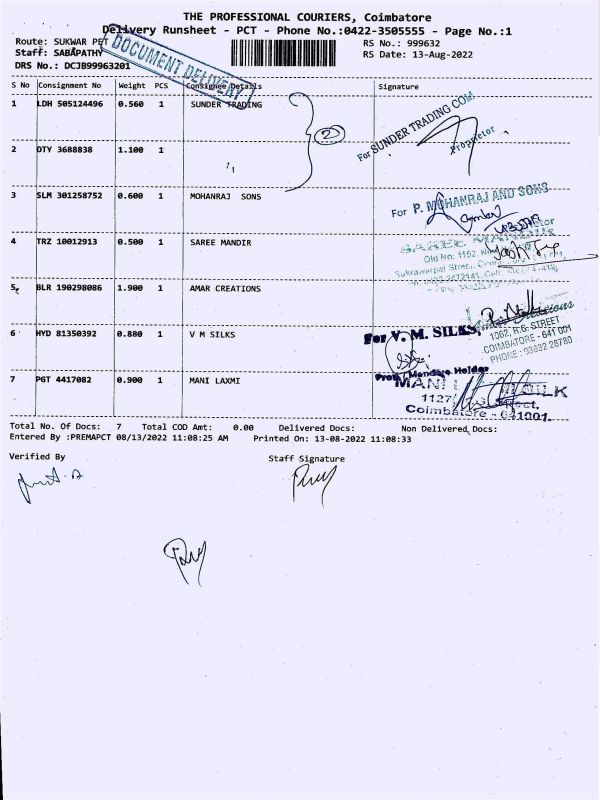 THE PROFESSIONAL COURIERS, Coimbatore
Delivery Runsheet - PCT - Phone No.:0422-3505555 - Page No.:1
Route: SUKWAR PET
RS No.: 999632
Staff: SABAPATHY
RS Date: 13-Aug-2022
DRS No.: DCJB99963201
DOCUMENT DELIVERY
S No Consignment No Weight PCS Consignee Details Signature
1 LDH 505124496 0.560 1 SUNDER TRADING
2
For SUNDER TRADING COM
Proprietor
2 OTY 3688838 1.100 1 "
3 SLM 301258752 0.600 1 MOHANRAJ SONS
For P. MOHANRAJ AND SONS
4 TRZ 10012913 0.500 1 SAREE MANDIR
SAREE MANDIR
Old No: 1152,
5 BLR 190298086 1.900 1 AMAR CREATIONS
1062, R.G. STREET
COIMBATORE - 641 001
PHONE : 93632 28780
6 HYD 81350392 0.880 1 V M SILKS
For V. M. SILKS,
7 PGT 4417082 0.900 1 MANI LAXMI
MANI
SILK
1127/
Coimbatore - 641001.
Total No. Of Docs: 7 Total COD Amt: 0.00 Delivered Docs: Non Delivered Docs:
Entered By :PREMAPCT 08/13/2022 11:08:25 AM Printed On: 13-08-2022 11:08:33
Verified By
Staff Signature